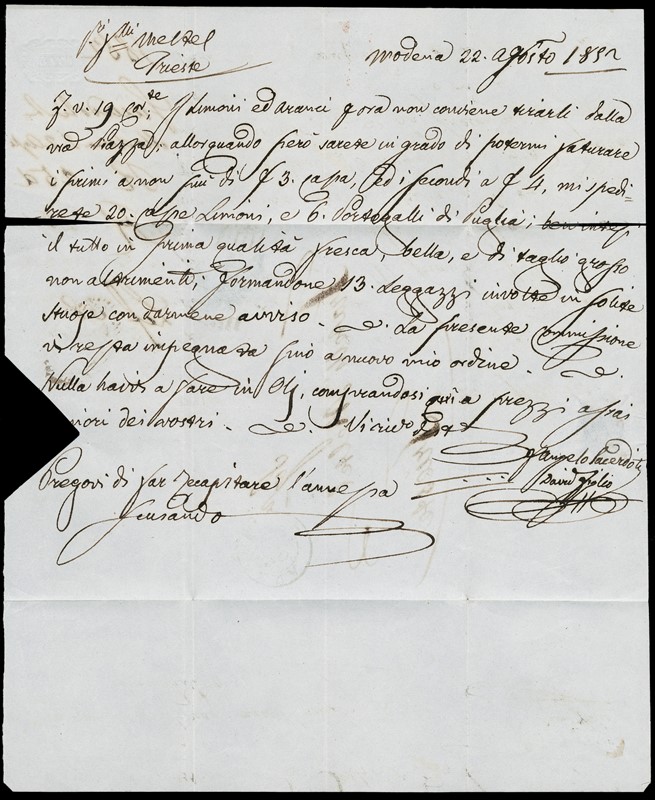 Trieste
Modena 22. Agosto 1852
I Limoni ed Aranci p ora non conviene tirarli dalla
vra Piazza; allorquando però sarete in grado di potermi faturare
i primi a non più di f 3. cassa, ed i secondi a f 4, mi spedi-
rete 20. casse Limoni, e 6. Portogalli di Puglia;
il tutto in prima qualità fresca, bella, e di taglio grosso
non altrimenti, formandone 13. Leggazzi involte in solite
stuoje con darmene avviso. La presente comissione
vi resta impegnata sino a nuovo mio ordine.
Nulla havvi a fare in Olj, comprandosi qui a prezzi assai
minori dei vostri. Vi riverisco
Angelo Sacerdoti
David figlio
Pregovi di far recapitare l'annessa
scusando